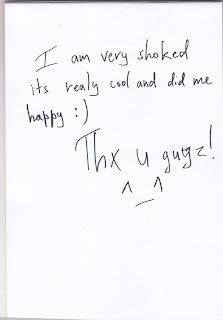 I am very shoked
its realy cool and did me
happy :)
Thx u guyz!
^_^